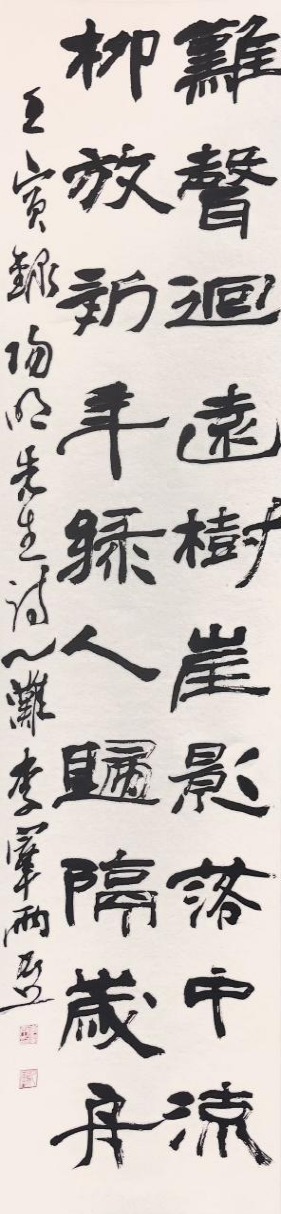 難聲迴遠樹崖影落中流
柳放新年綠人歸隔歲舟
壬寅錄陽明先生诗灘李